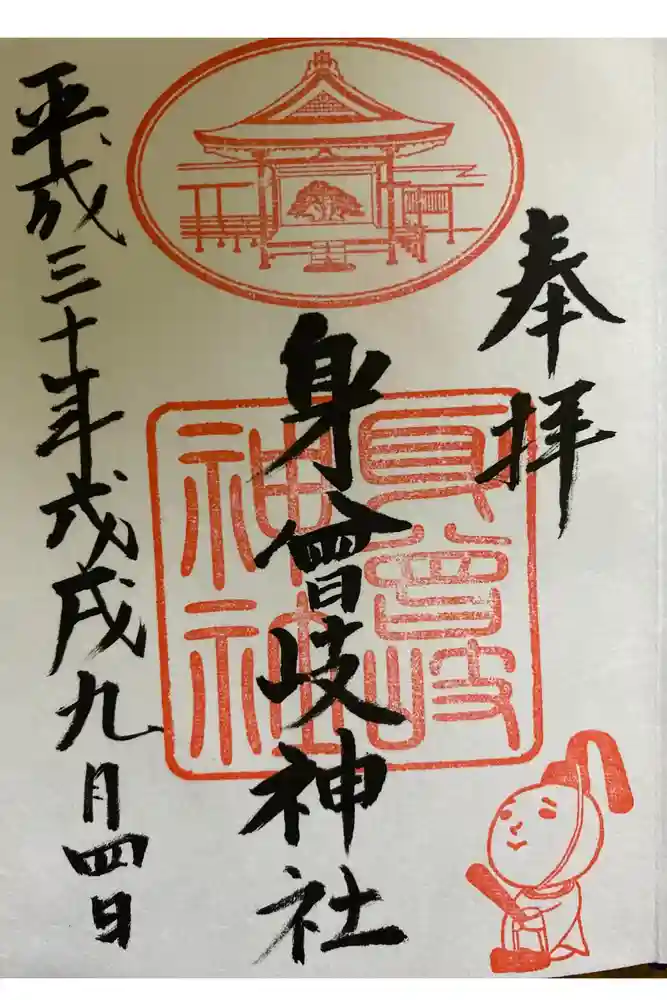 奉拝
身曾岐神社
身曾岐神社
平成三十年戊戌九月四日